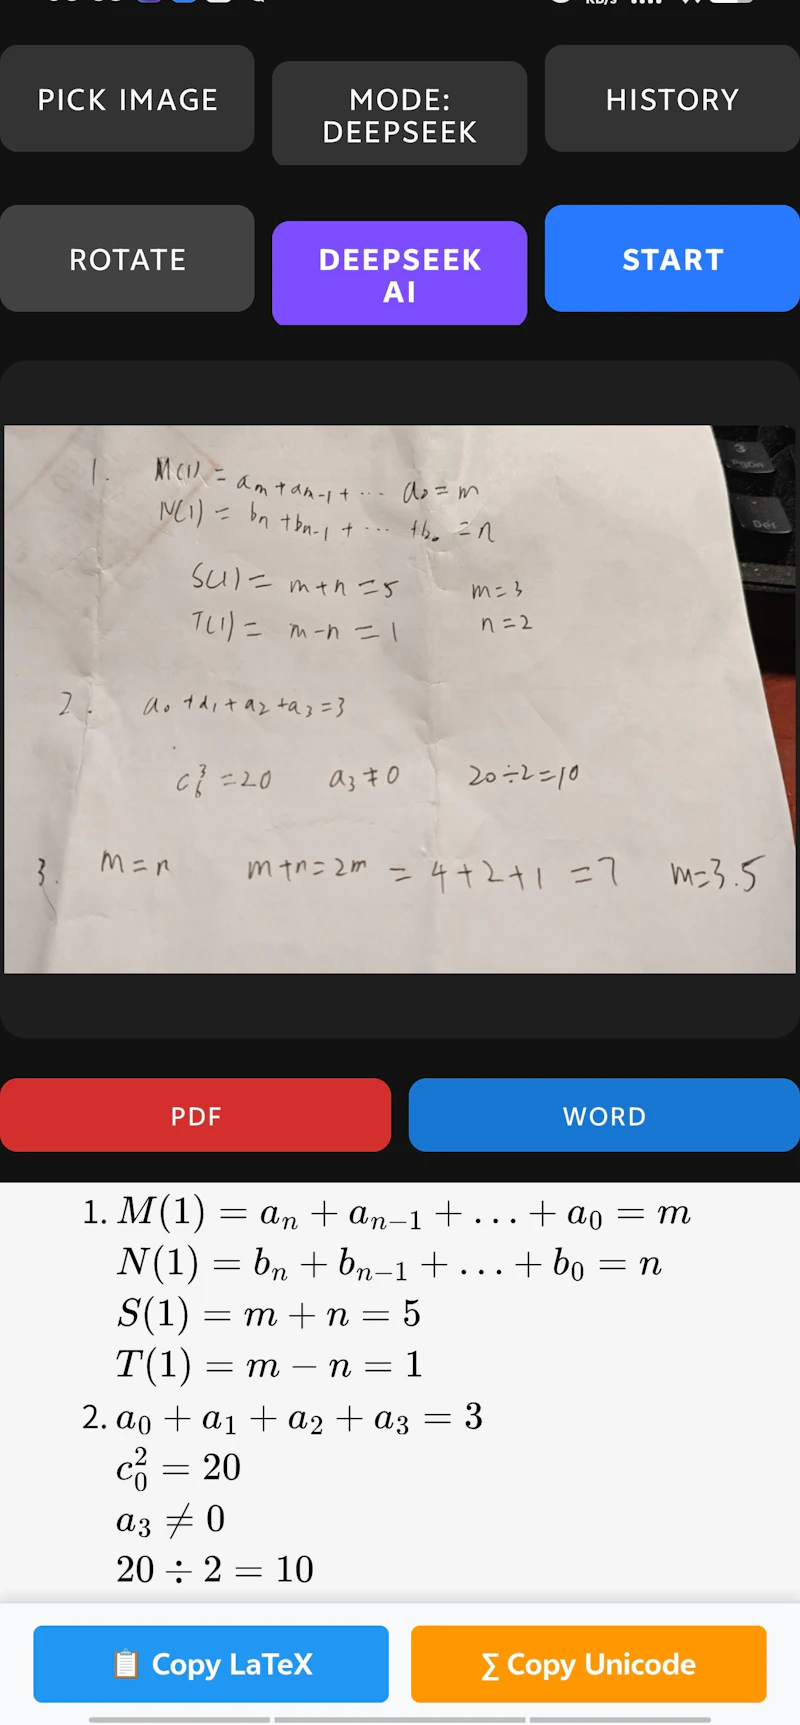 KB/s
PICK IMAGE
MODE:
DEEPSEEK
HISTORY
ROTATE
DEEPSEEK
AI
START
3
PgDn
Del
1. M(1) = aₘ + aₘ₋₁ + ⋯ a₀ = m
N(1) = bₙ + bₙ₋₁ + ⋯ + b₀ = n
S(1) = m+n = 5 m=3
T(1) = m-n = 1 n=2
2. a₀ + a₁ + a₂ + a₃ = 3
C₆³ = 20 a₃ ≠ 0 20÷2=10
3. m=n m+n=2m = 4+2+1 = 7 m=3.5
PDF
WORD
1. M(1) = aₙ + aₙ₋₁ + … + a₀ = m
N(1) = bₙ + bₙ₋₁ + … + b₀ = n
S(1) = m + n = 5
T(1) = m − n = 1
2. a₀ + a₁ + a₂ + a₃ = 3
c₀² = 20
a₃ ≠ 0
20 ÷ 2 = 10
📋 Copy LaTeX
∑ Copy Unicode